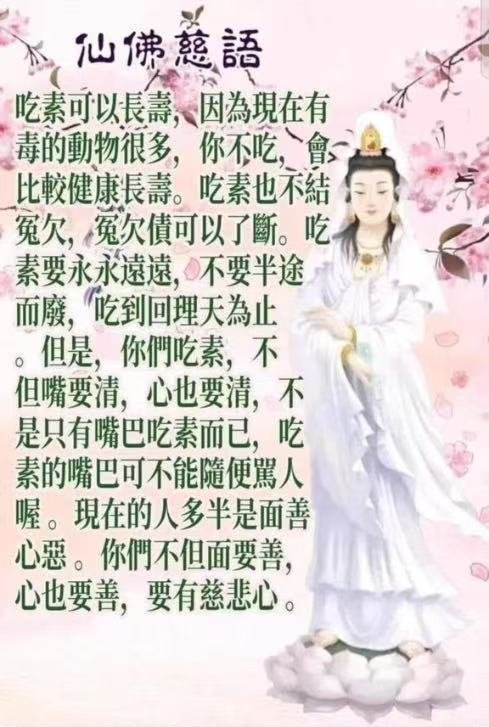 仙佛慈語
吃素可以長壽，因為現在有
毒的動物很多，你不吃，會
比較健康長壽。吃素也不結
冤欠，冤欠債可以了斷。吃
素要永永遠遠，不要半途
而廢，吃到回理天為止
。但是，你們吃素，不
但嘴要清，心也要清，不
是只有嘴巴吃素而已，吃
素的嘴巴可不能隨便罵人
喔。現在的人多半是面善
心惡。你們不但面要善，
心也要善，要有慈悲心。